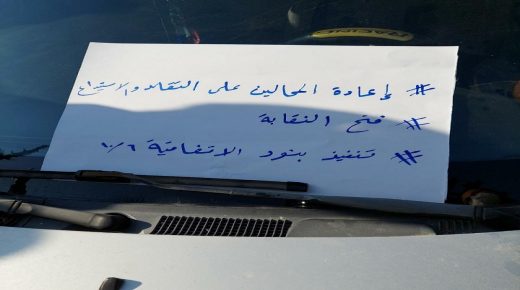 # إعادة المحالين على التقاعد والاستيداع
# فتح النقابة
# تنفيذ بنود الاتفاقية
RACING